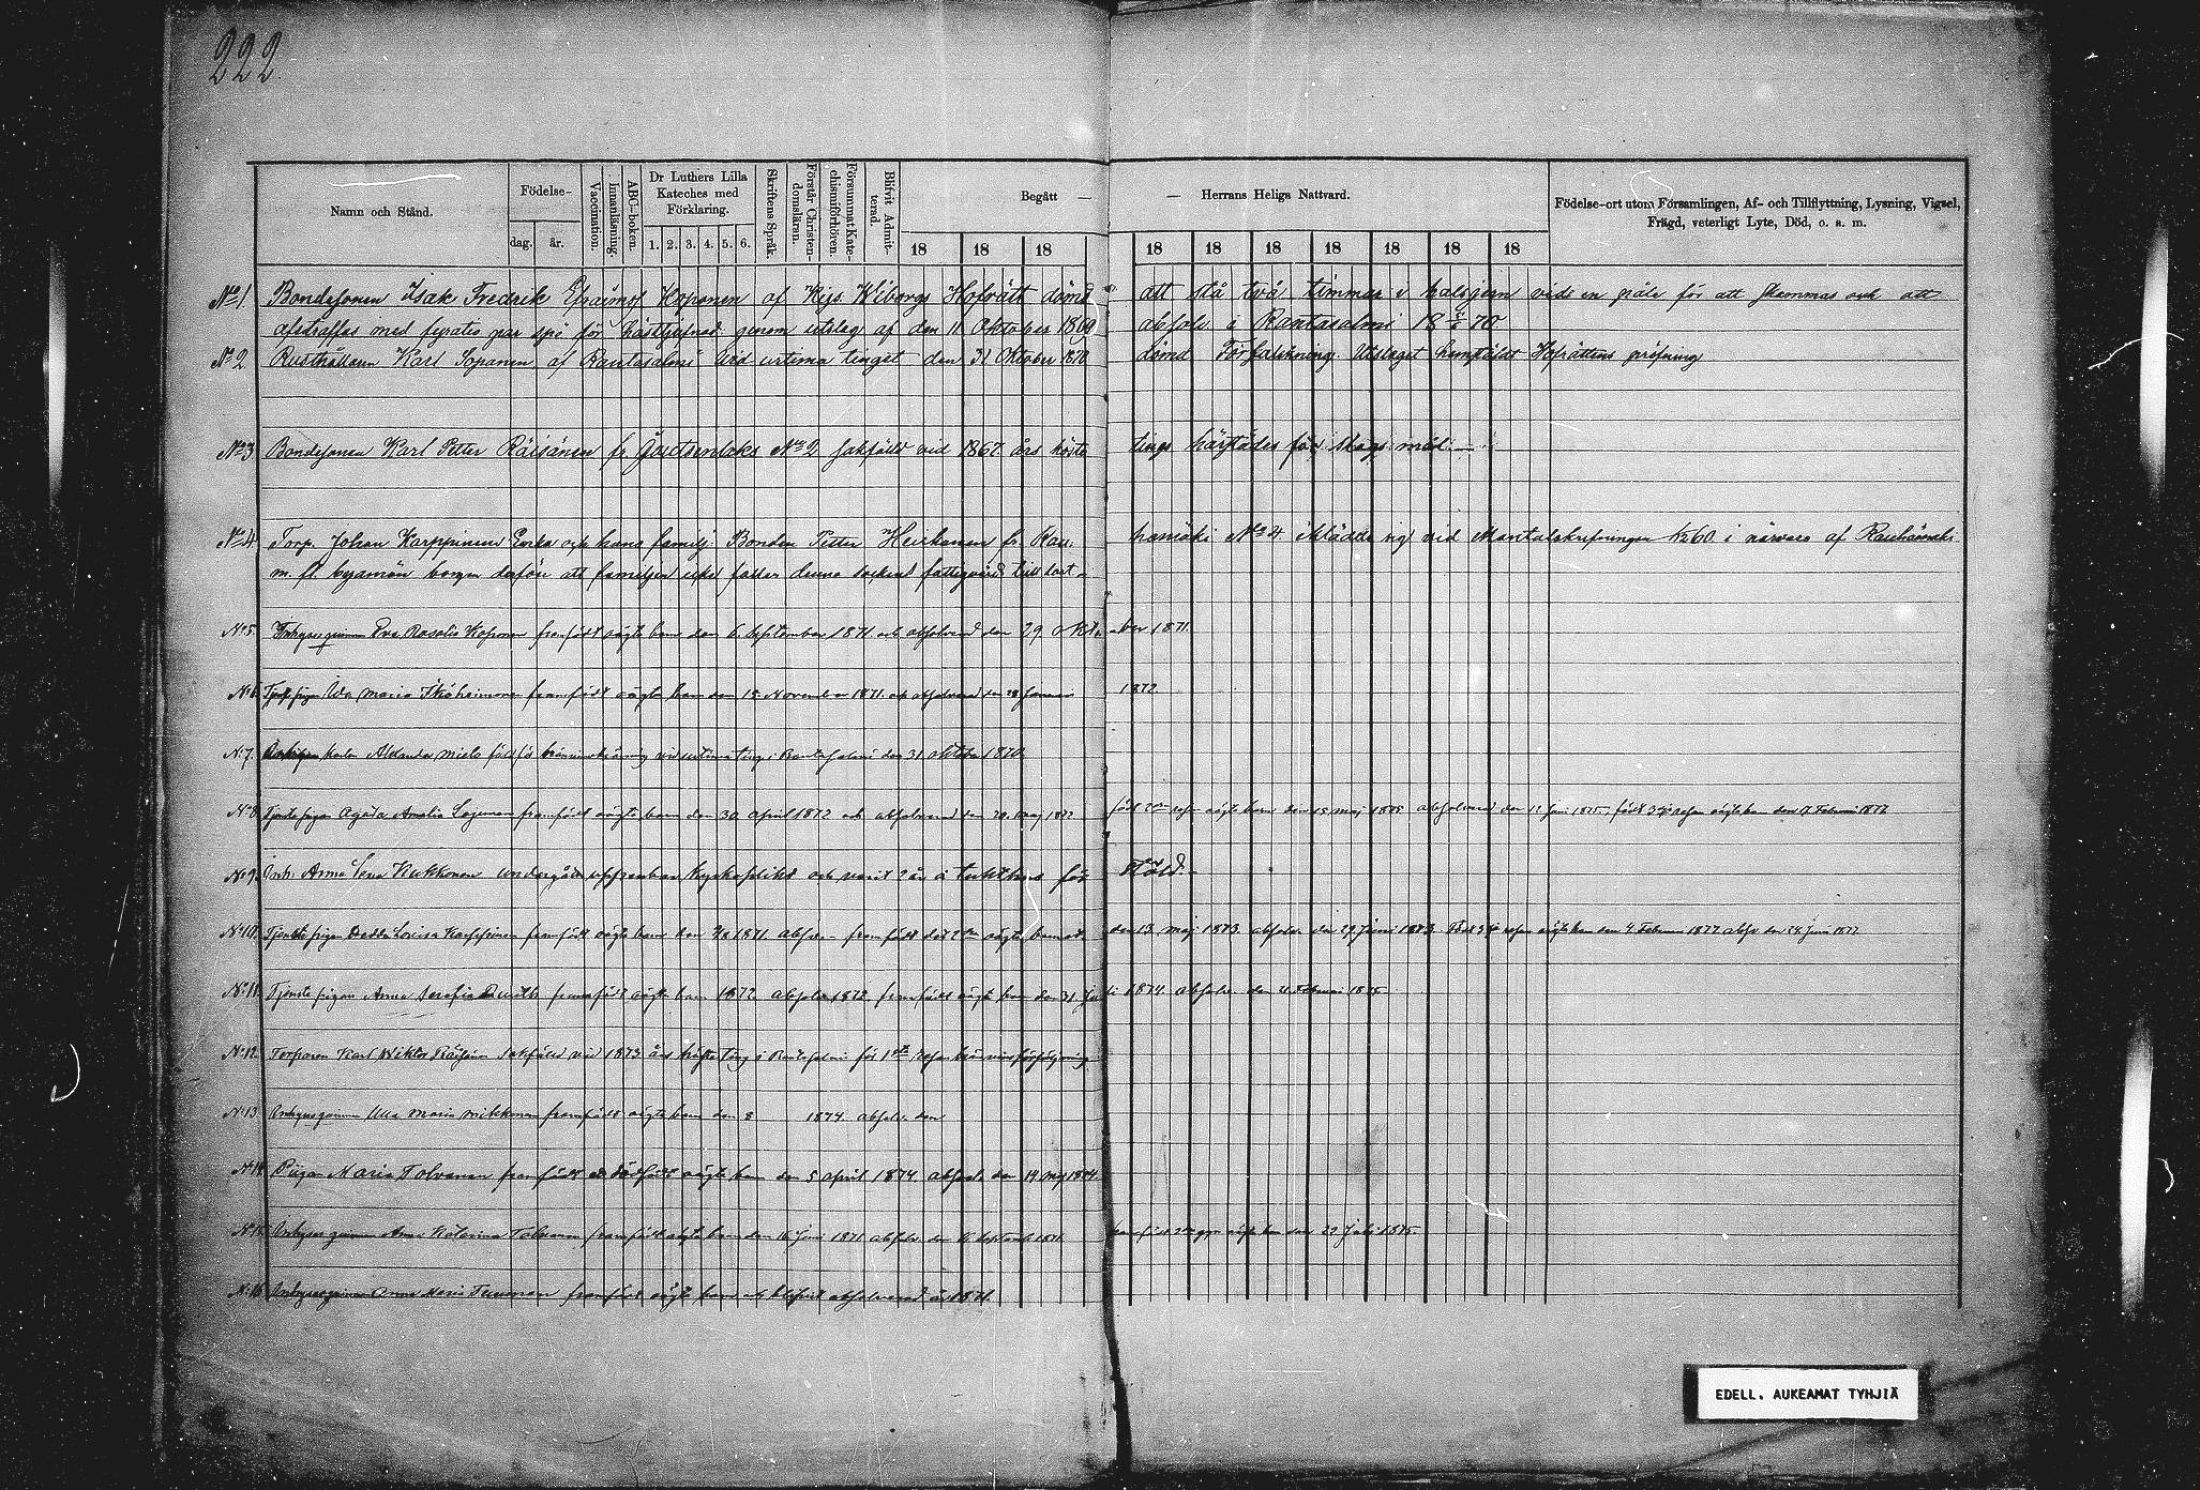 222.
Namn och Stånd.
Födelse-
dag.
år.
Vaccination.
Innanläsning.
ABC-boken.
Dr Luthers Lilla
Kateches med
Förklaring.
1. 2. 3. 4. 5. 6.
Skriftens Språk.
Förstår Christen-
domsläran.
Försummat Kate-
chismiförhören.
Blifvit Admit-
terad.
Begått — — Herrans Heliga Nattvard.
18 18 18 18 18 18 18 18 18 18
Födelse-ort utom Församlingen, Af- och Tillflyttning, Lysning, Vigsel,
Frägd, veterligt Lyte, Död, o. s. m.
No 1 Bondesonen Isak Fredrik Efraimsf Koponen af Kejs. Wiborgs Hofrätt dömd att stå två timmar i halsjern vid en påle för att skämmas och att
afstraffas med fyratio par spö för hästtjufnad genom utslag af den 11 Oktober 1869 absolv i Rantasalmi 18 70
No 2 Rusthållaren Karl Kopanen af Rantasalmi vid urtima tinget den 31 Oktober 1870 dömd Förfalskning. Utslaget hemstäldt Hofrättens pröfning
No 3 Bondesonen Karl Petter Räisänen fr No 2 sakfälld vid 1867 års höste tings härstädes för slags mål. —
No 4 Torp. Johan Karppinens Enka och hans familj Bonden Petter Heiskanen fr. Rau. hamäki No 4 iklädde sig vid Mantalskrifningen 1/2 60. i närvaro af Rauhamäki
m. fl. byamän borgen derföre att familjen icke faller denna sockens fattigvård till last –
No 5. Inhyses qvinnan Eva Rosalie Koponen framfödt oägta barn den 6. September 1871. och absolverad den 29. Okto ber 1871.
No 6. pigan Ida Maria framfödt oägta barn den 15. November 1871. och absolverad den 28 Januari 1872.
No 7. Alexander fäld för vid urtima ting i Rantasalmi den 31 oktober 1870.
No 8 Tjenste pigan Agata Amalia framfödt oägta barn den 30. april 1872 och absolverad den 20. maj 1872 född 2dra resan oägta barn den 15 maj 1875. absolverad den 1875, född 3dje resan oägta barn den 17 Februari 1877.
No 9. Inh. Anna Lena Kukkonen undergått uppenbar kyrkoplikt och varit 2 år å tukthus för Stöld. –
No 10. Tjenste pigan Hedda Lovisa Karppinen framfödt oägta barn den 1871. absolv. – framfödt det 2dra oägta barnet den 13. maj 1873. absolv. den 29 Juni 1873. Födt 3dje resan oägta barn den 4 Februari 1877 absv. den 24 Juni 1877
No 11. Tjenste pigan Anna Serafia framfödt oägta barn 1872 absolv. 1872 framfödt oägta barn den 31 Ju li 1874. absolv. den Februari 1875
No 12. Torparen Karl Wiktor Räisänen sakfälld vid 1873 års höste Ting i Rantasalmi för 1sta resan bränvins försäljning
No 13. Inhyses qvinnan Ulla Maria Mikkonen framfödt oägta barn den 8 1874. absolv. den
No 14. Pigan Maria Tolvanen framfödt ett dödfödt oägta barn den 5 april 1874. absolv. den 14 Maj 1874.
No 15. Inhyses qvinnan Anna Katarina Tolvanen framfödt oägta barn den 16 Juni 1871 absolv. den September 1871. framfödt 2dra oägta barn den 22 Juli 1875.
No 16. Inhyses qvinnan Anna Maria framfödt oägta barn och blifvit absolverad år 1871.
EDELL. AUKEAMAT TYHJIÄ